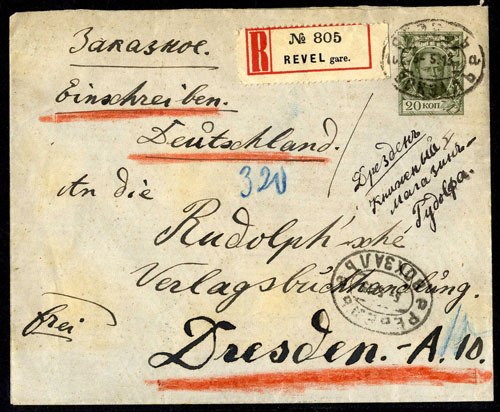 Заказное.
№ 805
REVEL gare.
R
20 КОП.
Einschreiben.
Deutschland.
320
Дрезденъ
Книжный
магазинъ
Рудольфа.
An die
Rudolph'sche
Verlagsbuchhandlung.
frei
Dresden.-A.10.
РЕВЕЛЬ
ВОКЗАЛЪ